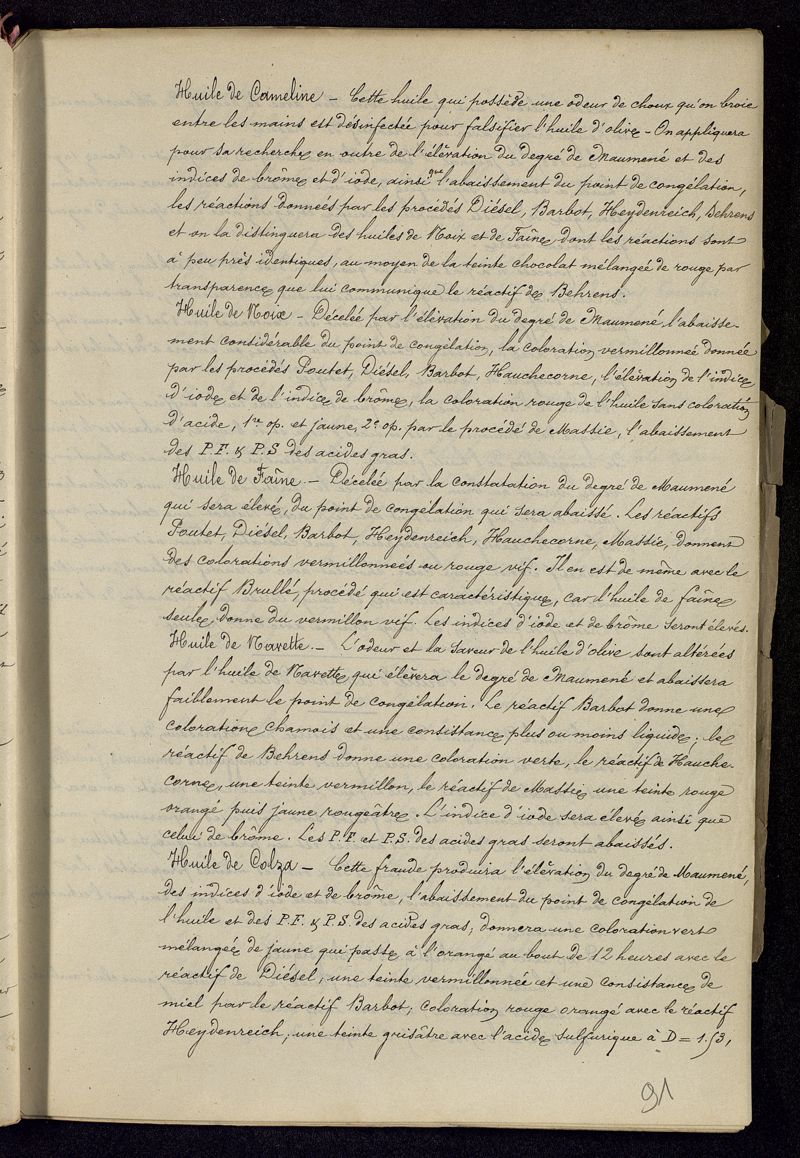 Huile de Cameline – Cette huile qui possède une odeur de choux qu'on broie
entre les mains est désinfectée pour falsifier l'huile d'olive – On appliquera
pour sa recherche en outre de l'élévation du degré de Maumené et des
indices de brôme et d'iode, ainsi que l'abaissement du point de congélation,
les réactions données par les procédés Diésel, Barbot, Heydenreich, Behrens
et on la distinguera des huiles de Noix et de Faîne dont les réactions sont
à peu près identiques, au moyen de la teinte chocolat mélangée de rouge par
transparence que lui communique le réactif de Behrens.
Huile de Noix – Décelée par l'élévation du degré de Maumené l'abaisse-
ment considérable du point de congélation, la coloration vermillonnée donnée
par les procédés Poutet, Diésel, Barbot, Hauchecorne, l'élévation de l'indice
d'iode et de l'indice de brôme, la coloration rouge de l'huile sans coloration
d'acide, 1re op. et jaune, 2e op. par le procédé de Massie, l'abaissement
des P.F. & P.S des acides gras.
Huile de Faîne. – Décelée par la constatation du degré de Maumené
qui sera élevé, du point de congélation qui sera abaissé. Les réactifs
Poutet, Diésel, Barbot, Heydenreich, Hauchecorne, Massie, donnent
des colorations vermillonnées ou rouge vif. Il en est de même avec le
réactif Brullé, procédé qui est caractéristique, car l'huile de faîne
seule, donne du vermillon vif. Les indices d'iode et de brôme seront élevés.
Huile de Navette. – L'odeur et la saveur de l'huile d'olive sont altérées
par l'huile de Navette qui élèvera le degré de Maumené et abaissera
faiblement le point de congélation. Le réactif Barbot donne une
coloration chamois et une consistance plus ou moins liquide; le
réactif de Behrens donne une coloration verte, le réactif de Hauche-
corne, une teinte vermillon, le réactif de Massie une teinte rouge
orangé puis jaune rougeâtre. L'indice d'iode sera élevé ainsi que
celui de brôme. Les P.F. et P.S. des acides gras seront abaissés.
Huile de Colza – Cette fraude produira l'élévation du degré de Maumené,
des indices d'iode et de brôme, l'abaissement du point de congélation de
l'huile et des P.F. & P.S. des acides gras; donnera une coloration vert
mélangée de jaune qui passe à l'orangé au bout de 12 heures avec le
réactif de Diésel; une teinte vermillonnée et une consistance de
miel par le réactif Barbot; coloration rouge orangé avec le réactif
Heydenreich; une teinte grisâtre avec l'acide sulfurique à D = 1.53,
91